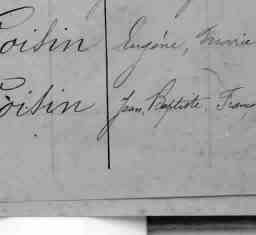 Loisin Eugène, Marie
Loisin Jean, Baptiste, Franç